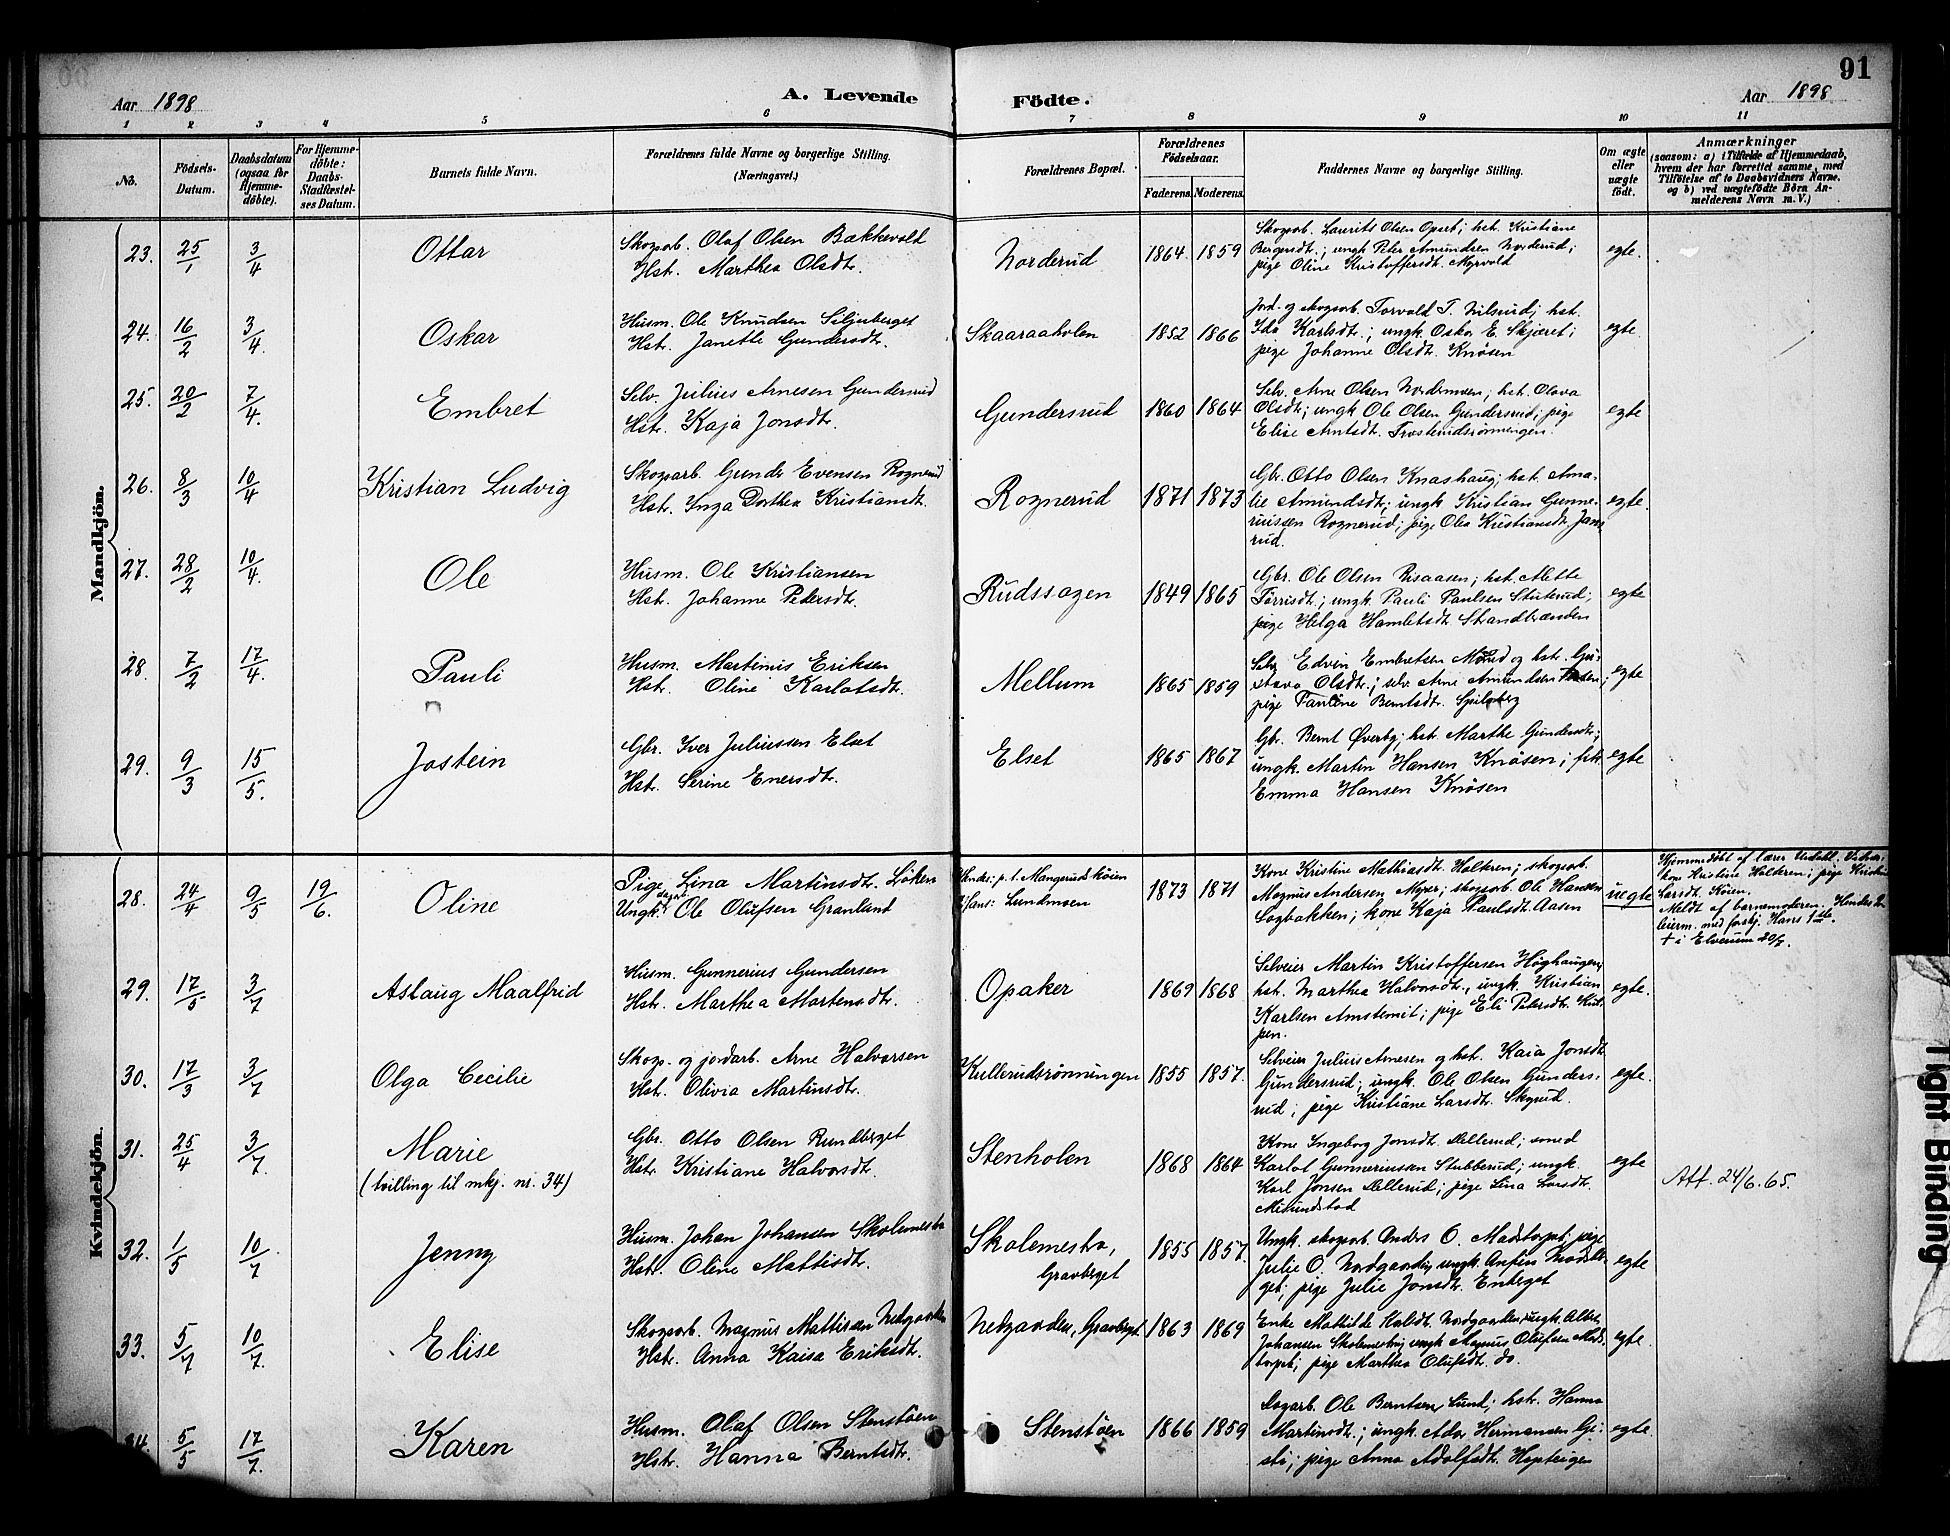 91
Aar 1898
A. Levende Födte.
Aar 1898
1 2 3 4 5 6 7 8 9 10 11
No.
Födsels-Datum.
Daabsdatum (ogsaa for Hjemme-döbte).
For Hjemme-döbte: Daabs-Stadfæstel-ses Datum.
Barnets fulde Navn.
Forældrenes fulde Navne og borgerlige Stilling.
(Næringsvei.)
Forældrenes Bopæl.
Forældrenes Födselsaar.
Faderens. Moderens.
Faddernes Navne og borgerlige Stilling.
Om ægte eller uægte födt.
Anmærkninger
(saasom: a) i Tilfælde af Hjemmedaab,
hvem der har forrettet samme, med
Tilföielse af to Daabsvidners Navne,
og b) ved uægtefödte Börn An-
melderens Navn m. V.)
Mandkjön.
23. 25/1 3/4 Ottar
Skogsarb. Olaf Olsen Bækkevold
Hst. Marthea Olsdtr.
Norderud 1864 1859
Skogsarb. Laurits Olsen Opset; hst. Kristiane
Bergersdt.; ungk. Peter Amundsen Norderud;
pige Oline Kristoffersdt. Myrvold
egte.
24. 16/2 3/4. Oskar
Husm. Ole Knudsen Siljuberget
Hst. Janette Gundersdtr.
Skaaraaholen 1852 1866
Jord- og skogsarb. Torvald T. Nilsrud; hst.
Ida Karlsdt.; ungk. Oskar E. Skjæret;
pige Johanne Olsdt. Knösen
egte.
25. 20/2 7/4. Embret
Selv. Julius Arnesen Gundersrud
Hst. Kaja Jonsdtr.
Gundersrud 1860 1864
Selv. Arne Olsen Nordmoen; hst. Olava
Olsdt.; ungk. Ole Olsen Gundersrud; pige
Elise Arntsdt.
egte
26. 8/3 10/4 Kristian Ludvig
Skogsarb. Gunder Evensen Rognerud
Hst. Inga Dorthea Kristiansdt.
Rognerud 1871 1873
Gbr. Otto Olsen Knashaug; hst. Ama-
lie Amundsdt.; ungk. Kristian Gunne-
riussen Rognerud; pige Olea Kristiansdt. Jans-
rud.
egte.
27. 28/2 10/4. Ole
Husm. Ole Kristiansen
Hst. Johanne Pedersdt.
Rudssagen 1849 1865
Gbr. Ole Olsen Risaasen; hst. Mette
Törrisdt.; ungk. Pauli Paulsen Stuterud;
pige Helga Hamletsdt. Strandbrænden
egte
28. 7/2 17/4. Pauli
Husm. Martinus Eriksen
Hst. Oline Karlotsdt.
Mellum 1865 1859
Selv. Edvin Embretsen Morud og hst. Gu-
stava Olsdt.; selv. Arne Amundsen
pige Pauline Berntsdt. Spilsberg
egte
29. 9/3 15/5. Jostein
Gbr. Iver Juliussen Elset
Hst. Serine Enersdt.
Elset 1865 1867
Gbr. Bernt Øverby; hst. Marthe Gundersdt.;
ungk. Martin Hansen Knösen; frk.
Emma Hansen Knösen
egte
Kvindekjön.
28. 24/4 9/5 19/6. Oline
Pige Lina Martinsdt. Løken
Ungk. Ole Olufsen Granlund
Hendes: p. t. Mangerudskôien
Hans: Lundmoen
1873 1871
Kone Kristine Mathiasdt. Holkren; skogsarb.
Magnus Andersen Myer; skogsarb. Ole Hansen
Sagbakken; kone Kaja Paulsdt. Aasen
uegte
Hjemmedöbt af lærer Urdahl. Vidner:
kone Kristine Holkren; pige Kristine
Larsdt. Köien.
Meldt af barnemoderen. Hendes 2
leierm. med forskj. Hans 1ste.
† i Elverum 20/7.
29. 17/5 3/7 Aslaug Maalfrid
Husm. Gunnerius Gundersen
Hst. Marthea Martensdt.
Opaker 1869 1868
Selveier Martin Kristoffersen Höghaugen,
hst. Marthea Halvorsdt., ungk. Kristian
Karlsen Amstemit; pige Eli Petersdt. Kul-
pen.
egte.
30. 17/3 3/7 Olga Cecilie
Skogs- og jordarb. Arne Halvorsen
Hst. Olivia Martinsdt.
Kullerudsrönningen 1855 1857.
Selveier Julius Arnesen og hst. Kaia Jonsdt.
Gundersrud; ungk. Ole Olsen Gunders-
rud; pige Kristiane Larsdt. Skyrud.
egte.
31. 25/4 3/7. Marie
(tvilling til mkj. nr. 34)
Gbr. Otto Olsen Rundberget
Hst. Kristiane Halvorsdt.
Stenholen 1868 1864
Kone Ingeborg Jonsdt. Dellerud; smed
Karlot Gunneriussen Stubberud; ungk.
Karl Jonsen Dellerud; pige Lina Larsdt.
Misundstad
egte
Att. 24/6. 65.
32. 1/5 10/7 Jenny
Husm. Johan Johansen Skolemestra
Hst. Oline Mattisdt.
Skolemestra, Gravberget 1855 1857.
Ungk. skogsarb. Anders O. Madstorpet; pige
Julie O. Nordgaarden; ungk. Anfin Modsber-
get; pige Julie Jonsdt.
egte
33. 5/7 10/7. Elise
Skogsarb. Magnus Mattisen Nedgaarden
Hst. Anna Kaisa Eriksdt.
Nedgaarden, Gravberget 1863 1869
Enke Mathilde Haldt. Nordgaarden; ungk. Albert
Johansen Skolemestra; ungk. Magnus Olufsen Mads-
torpet; pige Marthea Olufsdt. do.
egte.
34. 5/5 17/7. Karen
Husm. Olaf Olsen Stenstöen
Hst. Hanna Berntsdt.
Stenstöen 1866 1859
Dagarb. Ole Berntsen Lund; hst. Hanna
Martinsdt.; ungk. Adar Hermansen Gje-
sti; pige Anna Adolfsdt. Hopteigen
egte.
Tight Binding